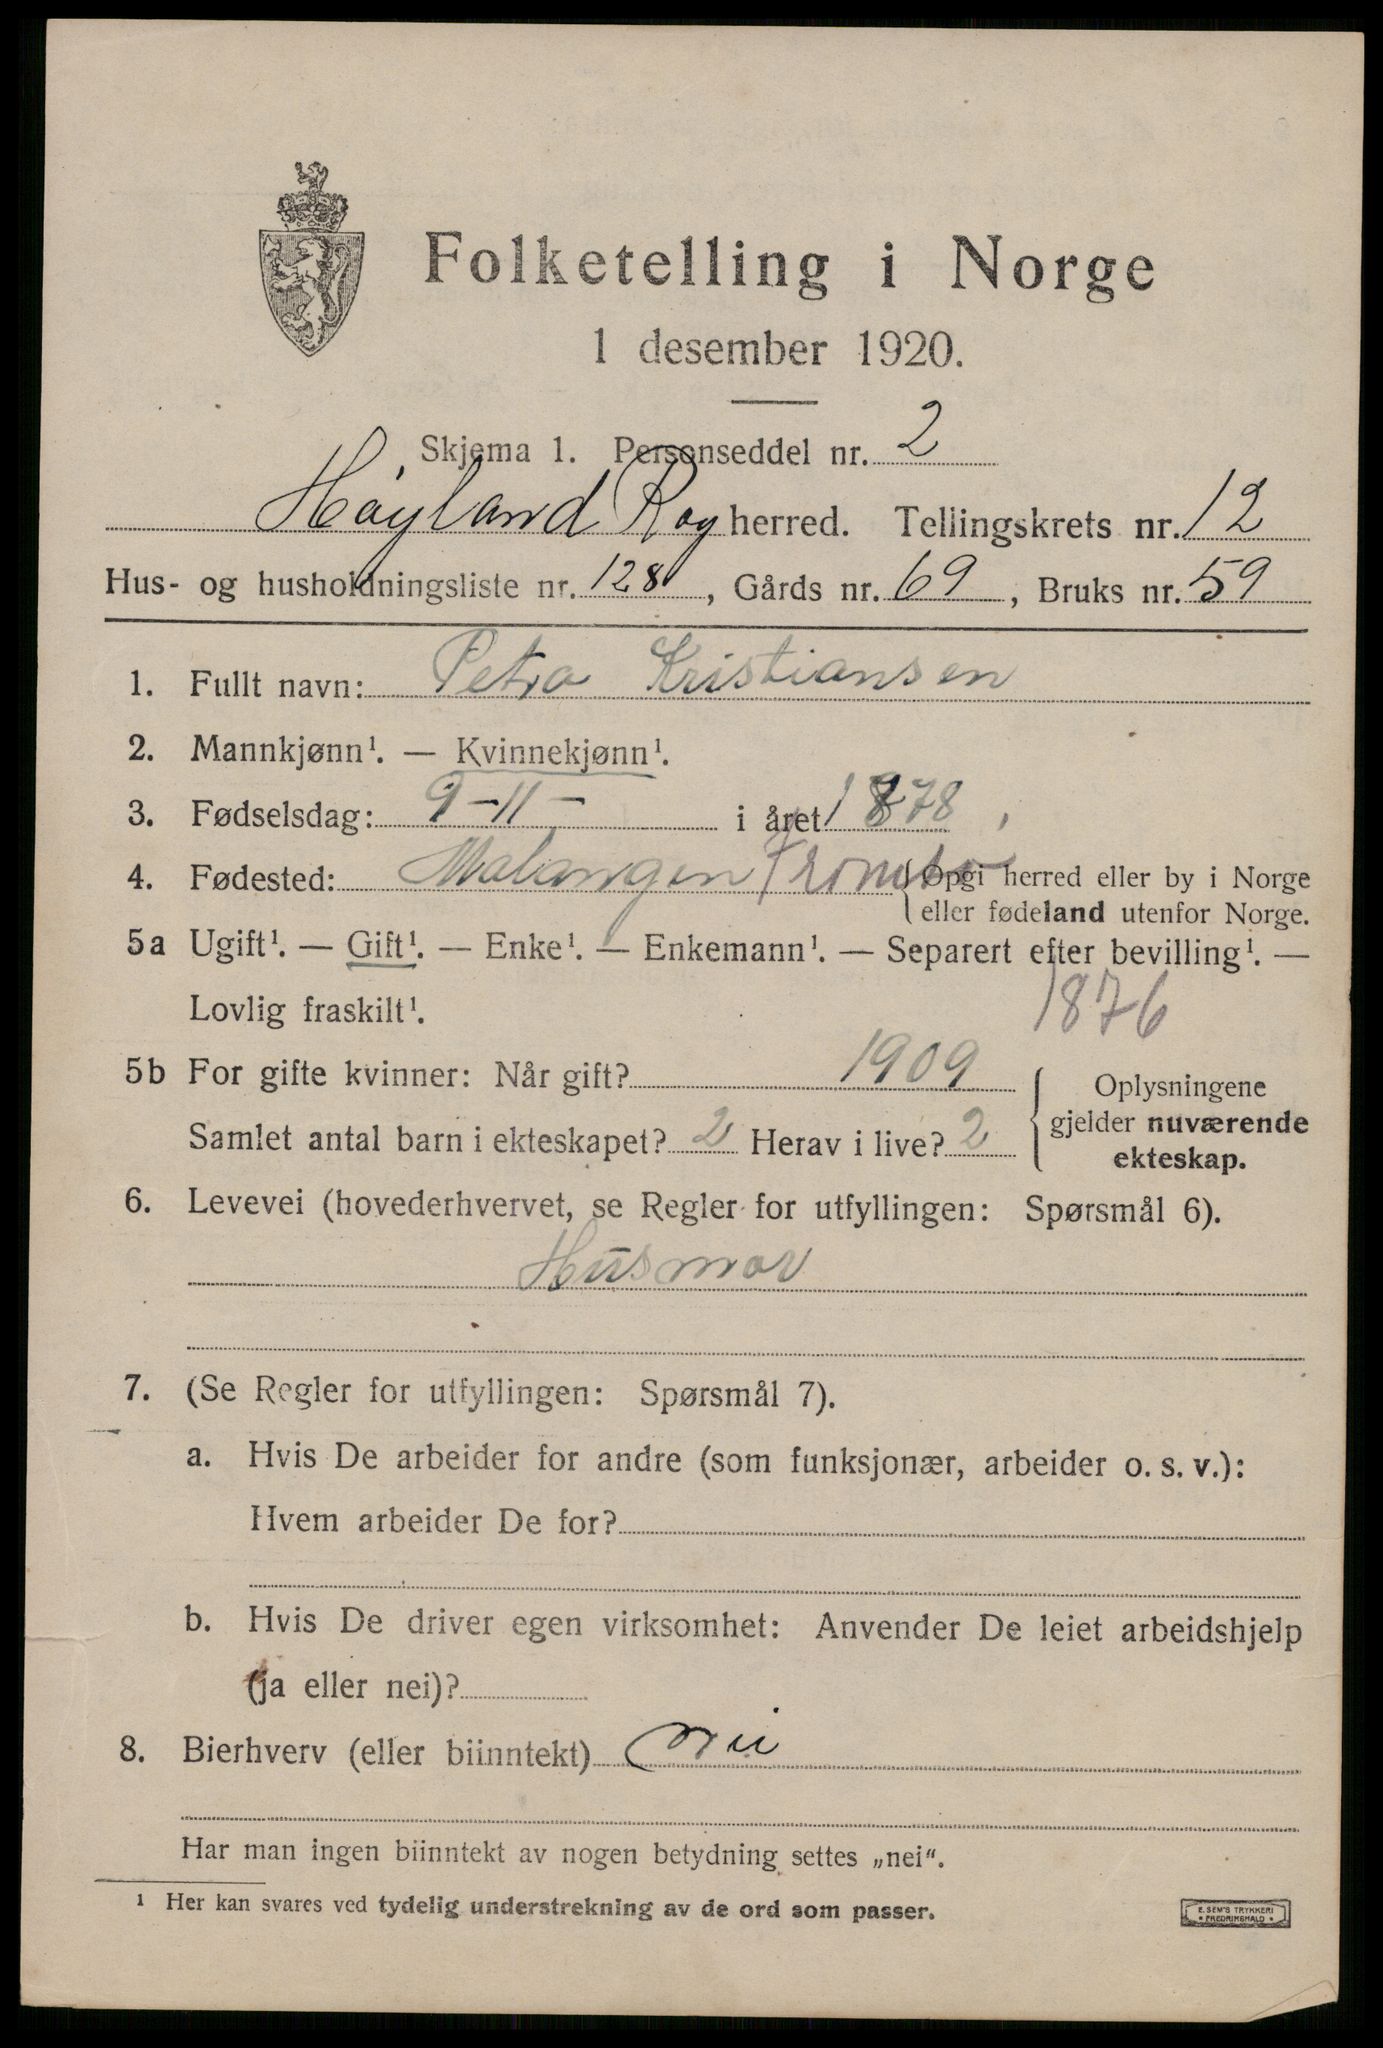 Folketelling i Norge
1 desember 1920.
Skjema 1. Personseddel nr. 2
Høyland Rog herred. Tellingskrets nr. 12
Hus- og husholdningsliste nr. 128, Gårds nr. 69, Bruks nr. 59
1. Fullt navn: Petra Kristiansen
2. Mannkjønn¹. — Kvinnekjønn¹.
3. Fødselsdag: 9-11- i året 1878
4. Fødested: Malangen Tromsø { Opgi herred eller by i Norge
eller fødeland utenfor Norge.
5a Ugift¹. — Gift¹. — Enke¹. — Enkemann¹. — Separert efter bevilling¹. —
Lovlig fraskilt¹. 1876
5b For gifte kvinner: Når gift? 1909
Samlet antal barn i ekteskapet? 2 Herav i live? 2
Oplysningene
gjelder nuværende
ekteskap.
6. Levevei (hovederhvervet, se Regler for utfyllingen: Spørsmål 6).
Husmor
7. (Se Regler for utfyllingen: Spørsmål 7).
a. Hvis De arbeider for andre (som funksjonær, arbeider o. s. v.):
Hvem arbeider De for?
b. Hvis De driver egen virksomhet: Anvender De leiet arbeidshjelp
(ja eller nei)?
8. Bierhverv (eller biinntekt) nei
Har man ingen biinntekt av nogen betydning settes „nei“.
¹ Her kan svares ved tydelig understrekning av de ord som passer.
E. SEM'S TRYKKERI
• FREDRIKSHALD •